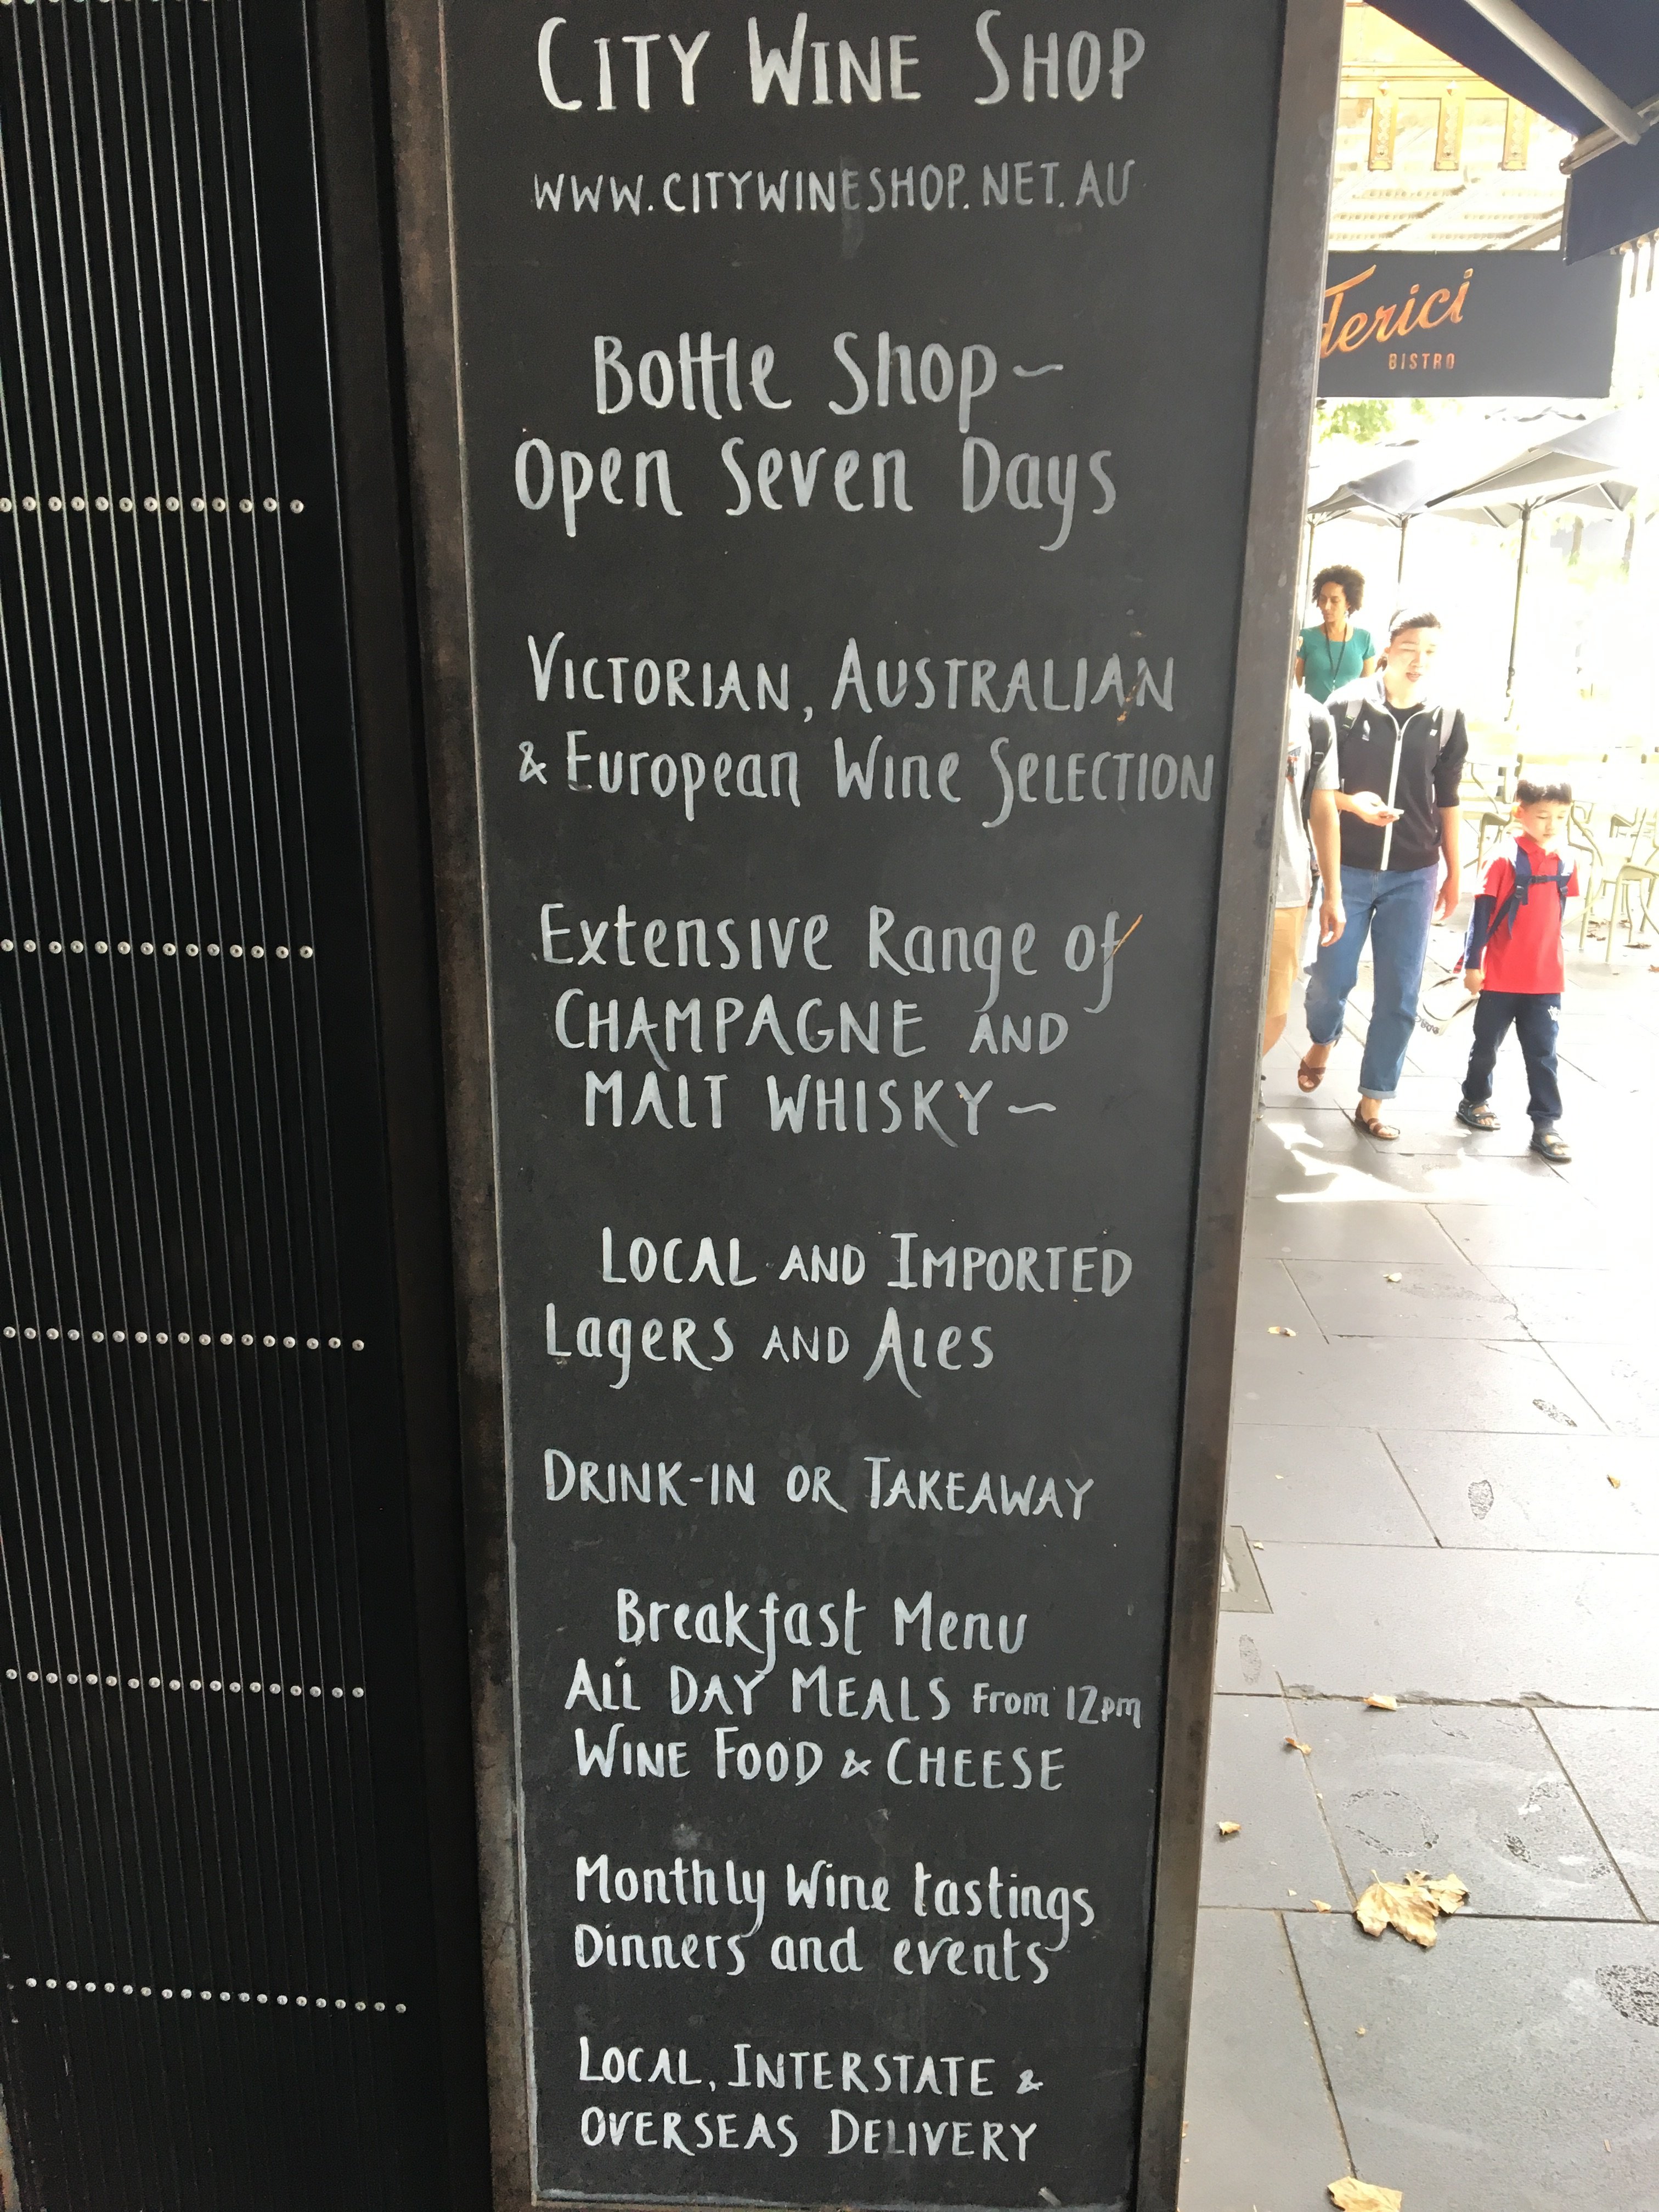 CITY WINE SHOP
WWW.CITYWINESHOP.NET.AU
Bottle Shop~
Open Seven Days
VICTORIAN, AUSTRALIAN
& European Wine SELECTION
Extensive Range of
CHAMPAGNE AND
MALT WHISKY~
LOCAL AND IMPORTED
LagERS AND Ales
DRINK-IN OR TAKEAWAY
Breakfast Menu
ALL DAY MEALS From 12pm
WINE FOOD & CHEESE
Monthly Wine tastings
Dinners and events
LOCAL, INTERSTATE &
OVERSEAS DELIVERY
derici
BISTRO